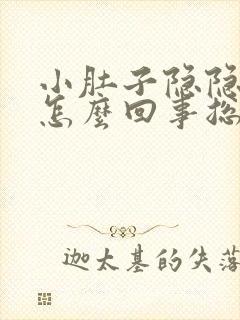 小肚子隐隐
怎麽回事总
迦太基的失落